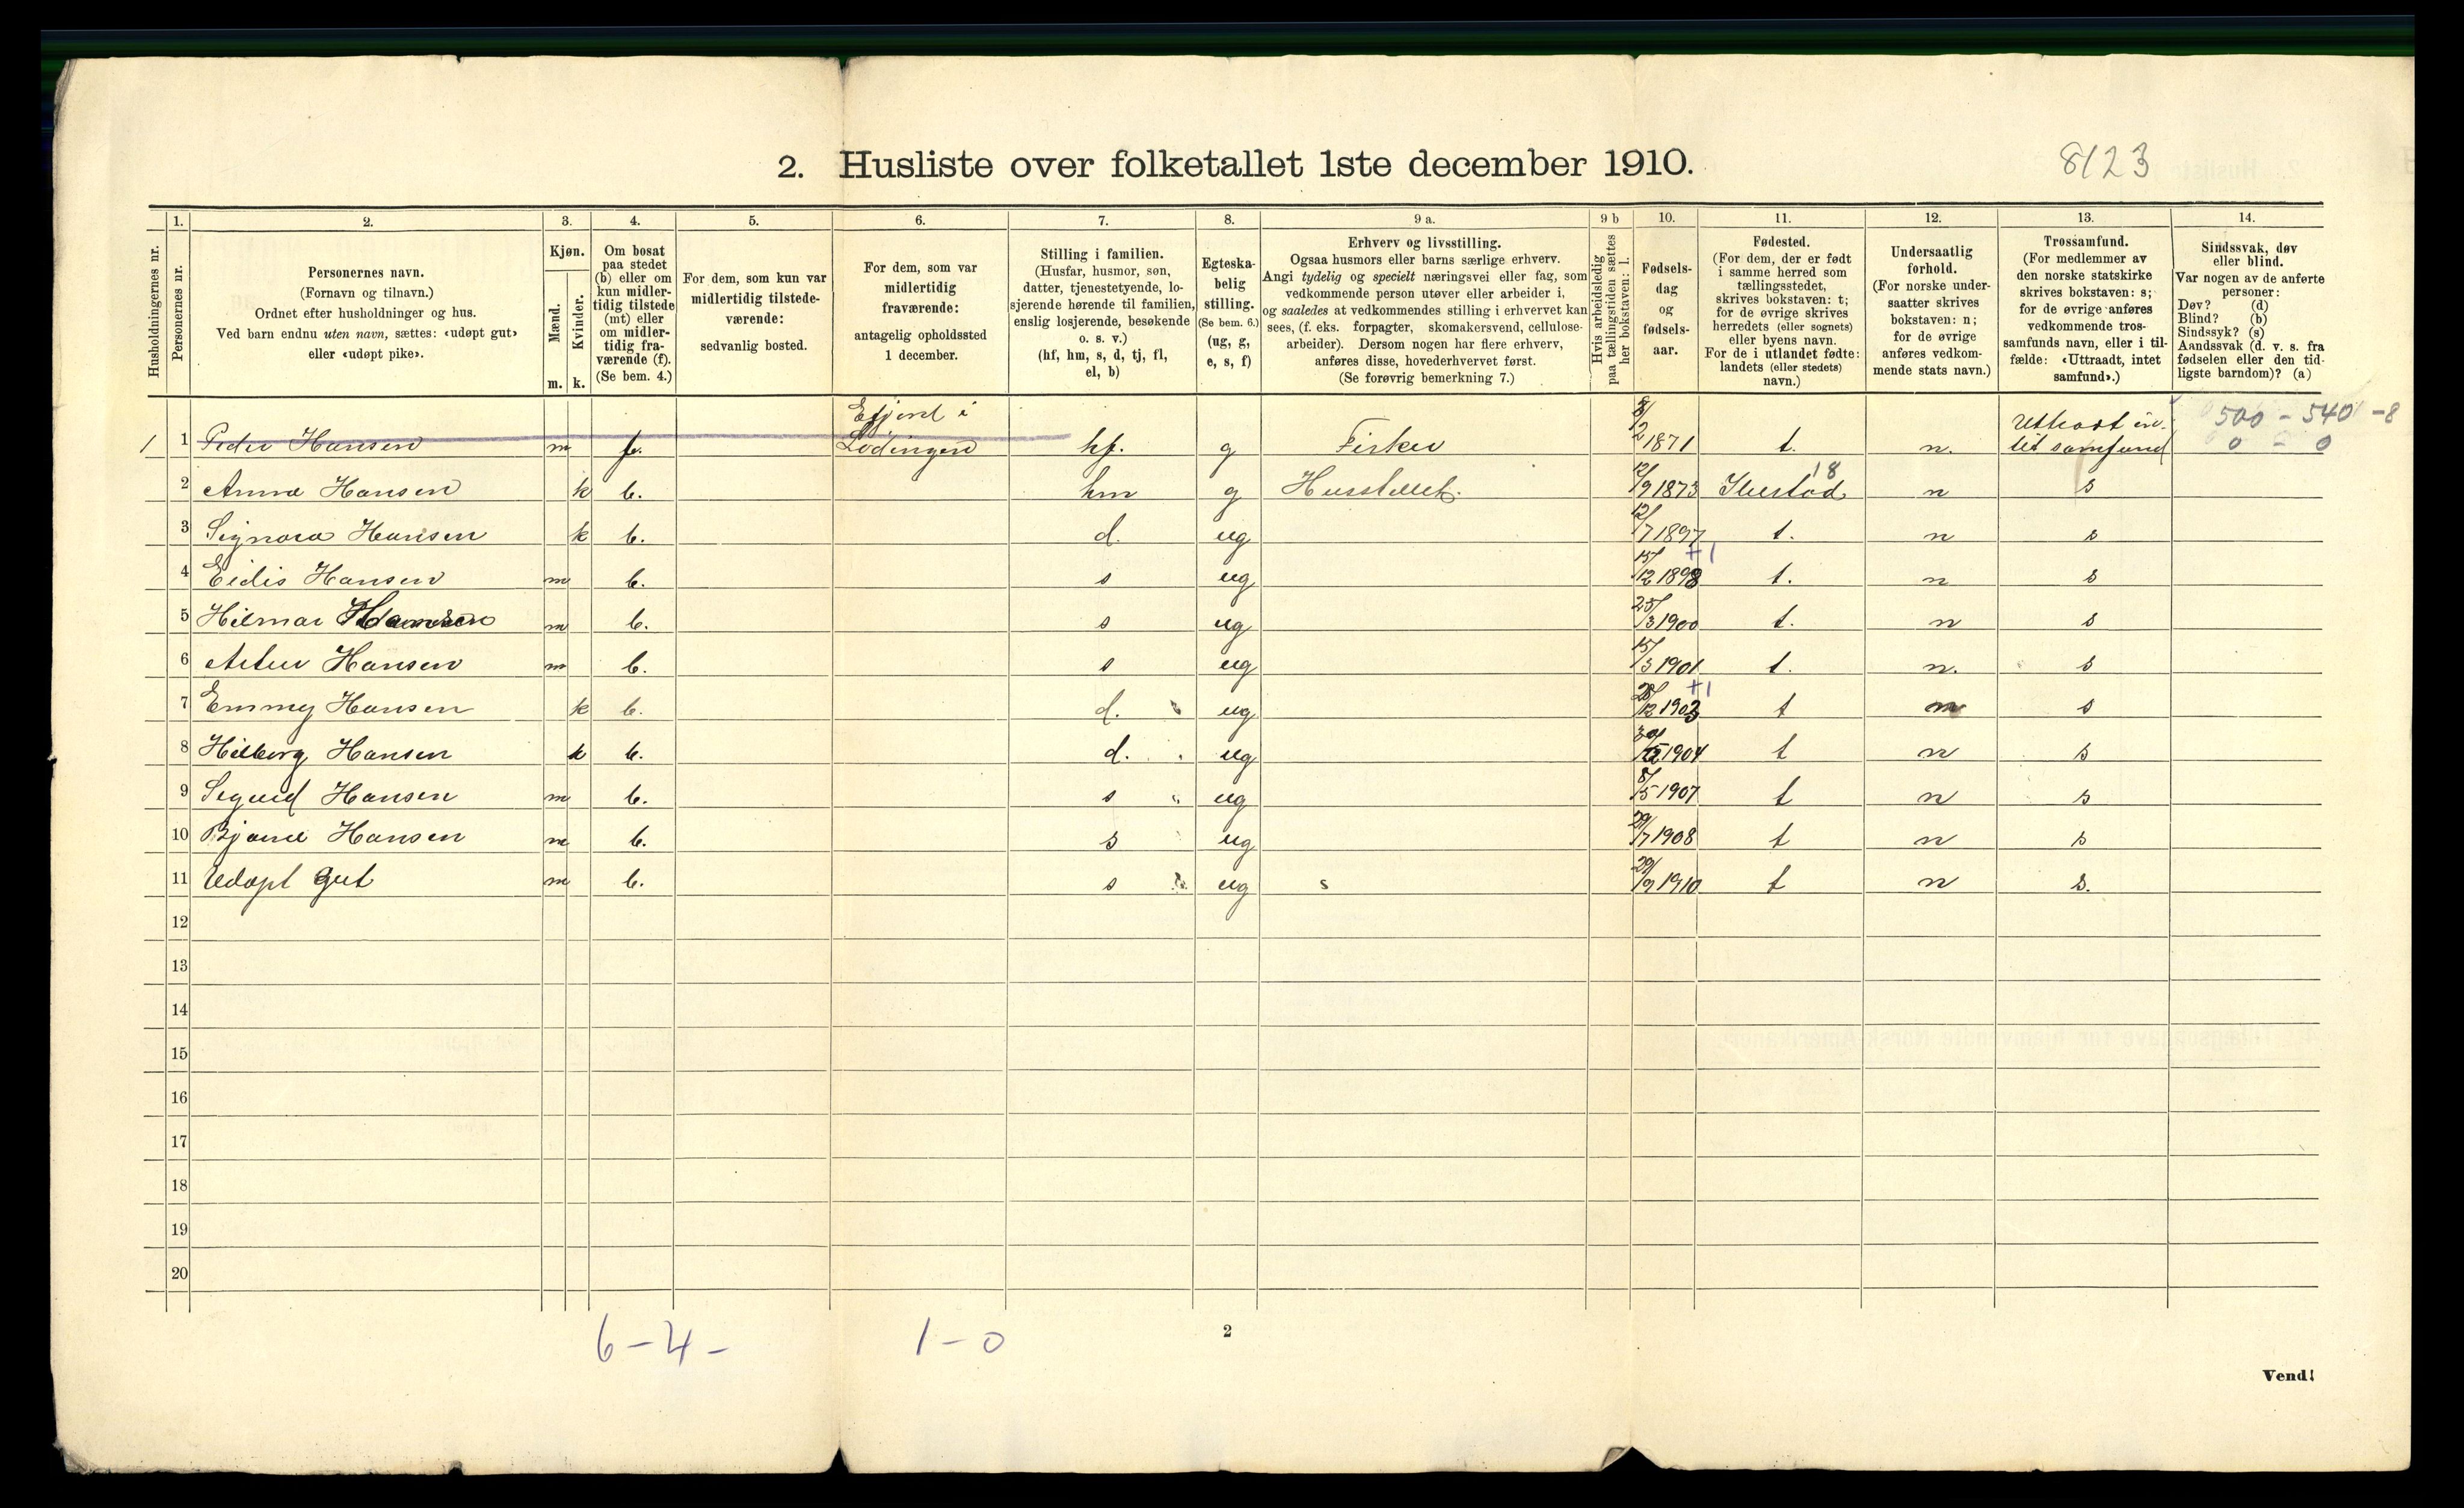 2. Husliste over folketallet 1ste december 1910.
8123
Husholdningernes nr.
1.
Personernes nr.
2.
Personernes navn.
(Fornavn og tilnavn.)
Ordnet efter husholdninger og hus.
Ved barn endnu uten navn, sættes: «udøpt gut»
eller «udøpt pike».
3.
Kjøn.
Mænd.
Kvinder.
m. k.
4.
Om bosat
paa stedet
(b) eller om
kun midler-
tidig tilstede
(mt) eller
om midler-
tidig fra-
værende (f).
(Se bem. 4.)
5.
For dem, som kun var
midlertidig tilstede-
værende:
sedvanlig bosted.
6.
For dem, som var
midlertidig
fraværende:
antagelig opholdssted
1 december.
7.
Stilling i familien.
(Husfar, husmor, søn,
datter, tjenestetyende, lo-
sjerende hørende til familien,
enslig losjerende, besøkende
o. s. v.)
(hf, hm, s, d, tj, fl,
el, b)
8.
Egteska-
belig
stilling.
(Se bem. 6.)
(ug, g,
e, s, f)
9 a.
Erhverv og livsstilling.
Ogsaa husmors eller barns særlige erhverv.
Angi tydelig og specielt næringsvei eller fag, som
vedkommende person utøver eller arbeider i,
og saaledes at vedkommendes stilling i erhvervet kan
sees, (f. eks. forpagter, skomakersvend, cellulose-
arbeider). Dersom nogen har flere erhverv,
anføres disse, hovederhvervet først.
(Se forøvrig bemerkning 7.)
9 b
Hvis arbeidsledig
paa tællingstiden sættes
her bokstaven: l.
10.
Fødsels-
dag
og
fødsels-
aar.
11.
Fødested.
(For dem, der er født
i samme herred som
tællingsstedet,
skrives bokstaven: t;
for de øvrige skrives
herredets (eller sognets)
eller byens navn.
For de i utlandet fødte:
landets (eller stedets)
navn.)
12.
Undersaatlig
forhold.
(For norske under-
saatter skrives
bokstaven: n;
for de øvrige
anføres vedkom-
mende stats navn.)
13.
Trossamfund.
(For medlemmer av
den norske statskirke
skrives bokstaven: s;
for de øvrige anføres
vedkommende tros-
samfunds navn, eller i til-
fælde: «Uttraadt, intet
samfund».)
14.
Sindssvak, døv
eller blind.
Var nogen av de anførte
personer:
Døv? (d)
Blind? (b)
Sindssyk? (s)
Aandssvak (d. v. s. fra
fødselen eller den tid-
ligste barndom)? (a)
500 - 540 - 8
0 - 0
1 1 Peder Hansen m f. Efjord i Lødingen hf. g Fisker 8/2 1871 t. n.
2 Anna Hansen k b. hm g Husstellet. 12/9 1873 18 n s
3 Signora Hansen k b. d. ug 12/7 1897 t. n s
4 Eidis Hansen m b. s ug 15/12 1898 +1 t. n s
5 Hilmar Hansen m b. s ug 25/3 1900 t. n s
6 Artur Hansen m b. s ug 15/3 1901 t. n. s
7 Emmy Hansen k b. d. ug 28/12 1903 +1 t n s
8 Hilborg Hansen k b. d. ug 1904 t n s
9 Sigurd Hansen m b. s ug 8/5 1907 t n s
10 Bjarne Hansen m b. s ug 29/7 1908 t n s
11 Udøpt Gut m b. s ug s 29/9 1910 t n s.
12
13
14
15
16
17
18
19
20
6-4- 1-0
2
Vend!